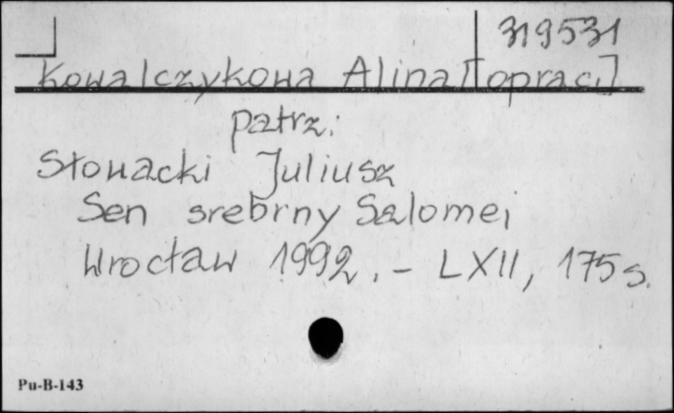 319531
Kowalczykowa Alina [oprac.]
patrz:
Słowacki Juliusz
Sen srebrny Salomei
Wrocław 1992. - LXII, 175 s.
Pu-B-143